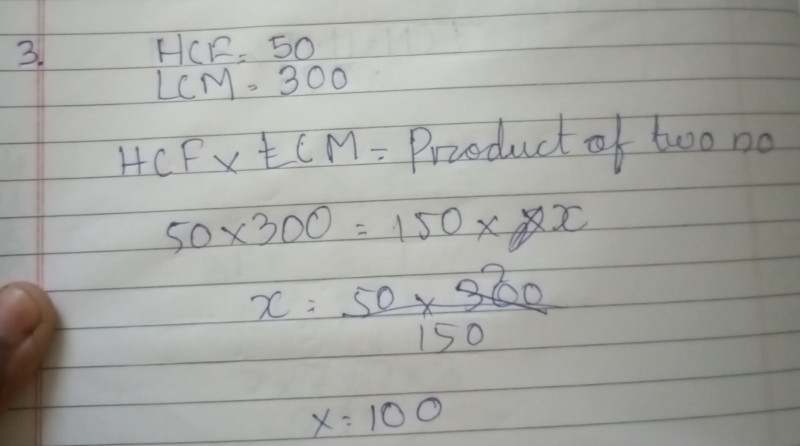 3. HCF = 50
LCM = 300
HCF x LCM = Product of two no
50 x 300 = 150 x x
x = 50 x 300 2
150
x = 100